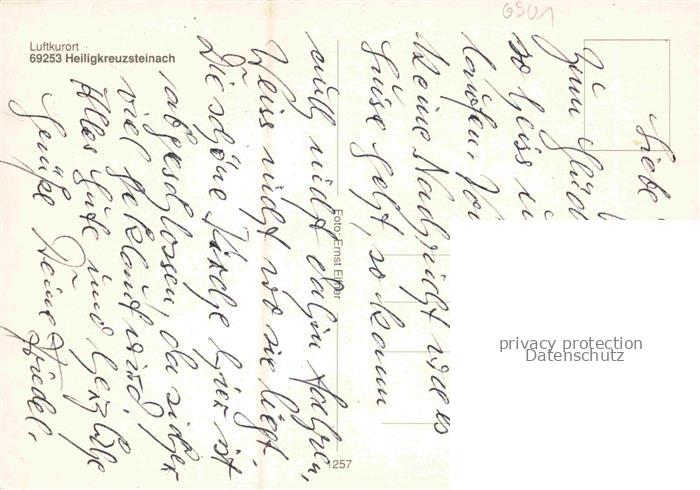 Luftkurort
69253 Heiligkreuzsteinach
6901
Foto: Ernst
1257
Liebe
Zum Glück
so heiss
laufen.
keine Nachricht
Luise geht, so kann
muß nicht dahin fahren,
Weiss nicht wo sie liegt
Die schöne Kirche hier ist
abgeschlossen, da sicher
viel geklaut wird.
Alles Gute und herzliche
Grüße Deine Friedel.
privacy protection
Datenschutz